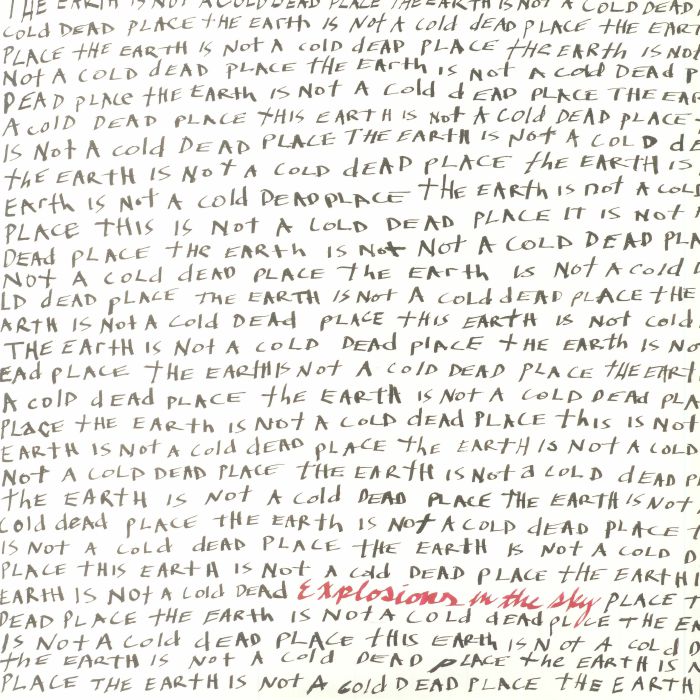 THE EARTH IS NOT A COLD DEAD PLACE THE EARTH IS NOT A COLD DEAD
COLD DEAD PLACE tHE EARTH IS NOt A cold dEAD PLACE tHE
PLACE tHE EARTH IS NOt A cold dEAD PLACE tHE EARTH IS NOt
NOt A COLD dEAD PLACE THE EARth IS NOt A cold DEAD
DEAD PLACE tHE EARth IS NOt A Cold dEAD PLACE THE
A COLD DEAD PLACE tHIS EARTH IS NOt A Cold DEAD PLACE
IS NOt A cold DEAD PLACE THE EARtH IS NOt A COLD
thE EARTH IS NOt A COLD dEAD PLACE thE EARTH IS
EARth IS NOt A cold DEAD PLACE tHE EARTH IS not A
PLACE THIS IS NOT A COLD DEAD PLACE IT IS NOt
DEAd PLACE tHE EARTH IS NOt NOt A COLD DEAD
NOT A COLD dEAD PLACE thE EARth IS NOt A cold
LD dEAD pLACE THE EARTH IS NOt A cold dEAD PLACE tHE
ARTH IS NOt A Cold DEAd PLACE tHIS EARTH IS Not cold
THE EARtH IS NOt A COLD DEAD PlACE tHE EARTH IS
EAd PLACE THE EARTH IS NOt A COLD DEAD PLACE tHE
A COLD dEAD PLACE thE EARTH IS NOt A COLD DEAD
PLACE tHE EARTH IS NOt A COLD dEAD PLACE this IS NOt
EARTH IS NOt A cold dEAD PLACE thE EARTH IS NOt A COLD
NOt A COLD DEAD PLACE THE EARtH IS NOt a COLD dEAD
thE EARTH IS NOt A cold DEAD PLACE THE EARTH IS NOt
cold dEAd PLACE tHE EARth IS NOt A COLD dEAD PLACE
IS NOt A Cold dEAD PLACE tHE EARTH IS NOt A COLD
PLACE THIS EARTH IS NOt A cold DEAD PLACE tHE EARTH
EARTH IS NOt A COLD DEAD Explosions in the sky PLACE
DEAD PLACE tHE EARth IS NOt A COLD dEAd PLACE tHE
IS NOt A Cold dEAD PLACE tHIS EARth IS NOt A COLD
thE EARTH IS NOt A COLD DEAD PLACE thE EARTH IS
PLACE THE EARTH IS NOt A cold DEAD PLACE tHE EARTH